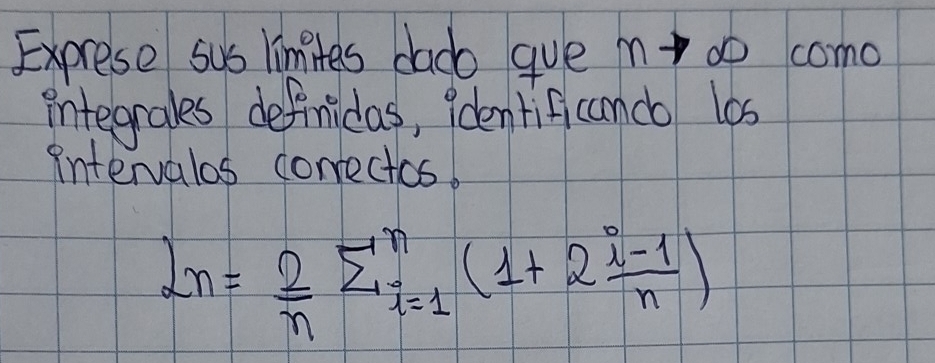 Exprese sus límites dado que n → ∞ como
integrales definidas, identificando los
intervalos correctos.
Ln = 2/n Σ_{i=1}^{n} (1 + 2 (i-1)/n)